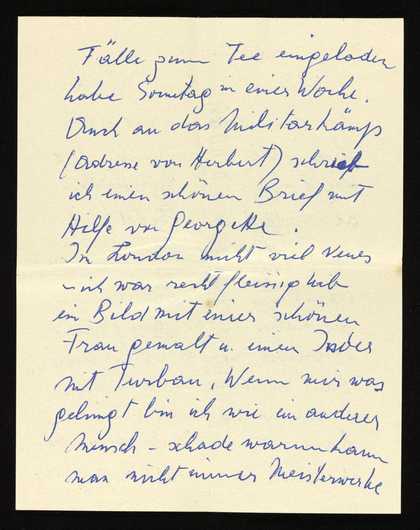 Fälle zum Tee eingeladen
habe Sonntag in einer Woche.
Auch an das Militärkamp
(Adresse von Herbert) schrieb
ich einen schönen Brief mit
Hilfe von Georgette.
In London nicht viel Neues
- ich war recht fleissig hab
ein Bild mit einer schönen
Frau gemalt u. einen Inder
mit Turban. Wenn mir was
gelingt bin ich wie ein anderer
Mensch - schade warum kann
man nicht immer Meisterwerke